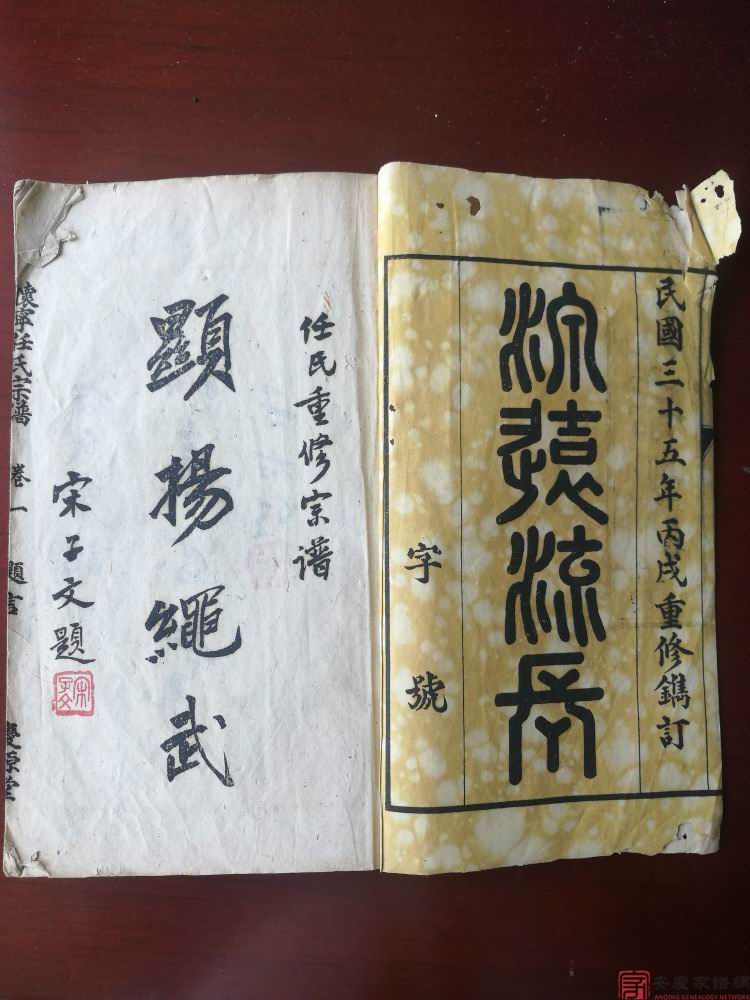 民國三十五年丙戌重修鐫訂
源遠流長
字號
任氏重修宗譜
顯揚繩武
宋子文題
懷寧任氏宗譜 卷一 題言
安慶家譜網
ANQING GENEALOGY NETWORK